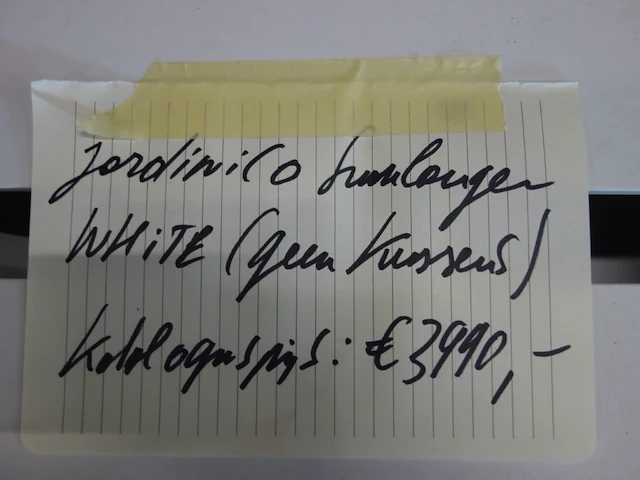 Jardinico sunlounger
WHITE (geen kussens)
Katalogusprijs: €3990,-